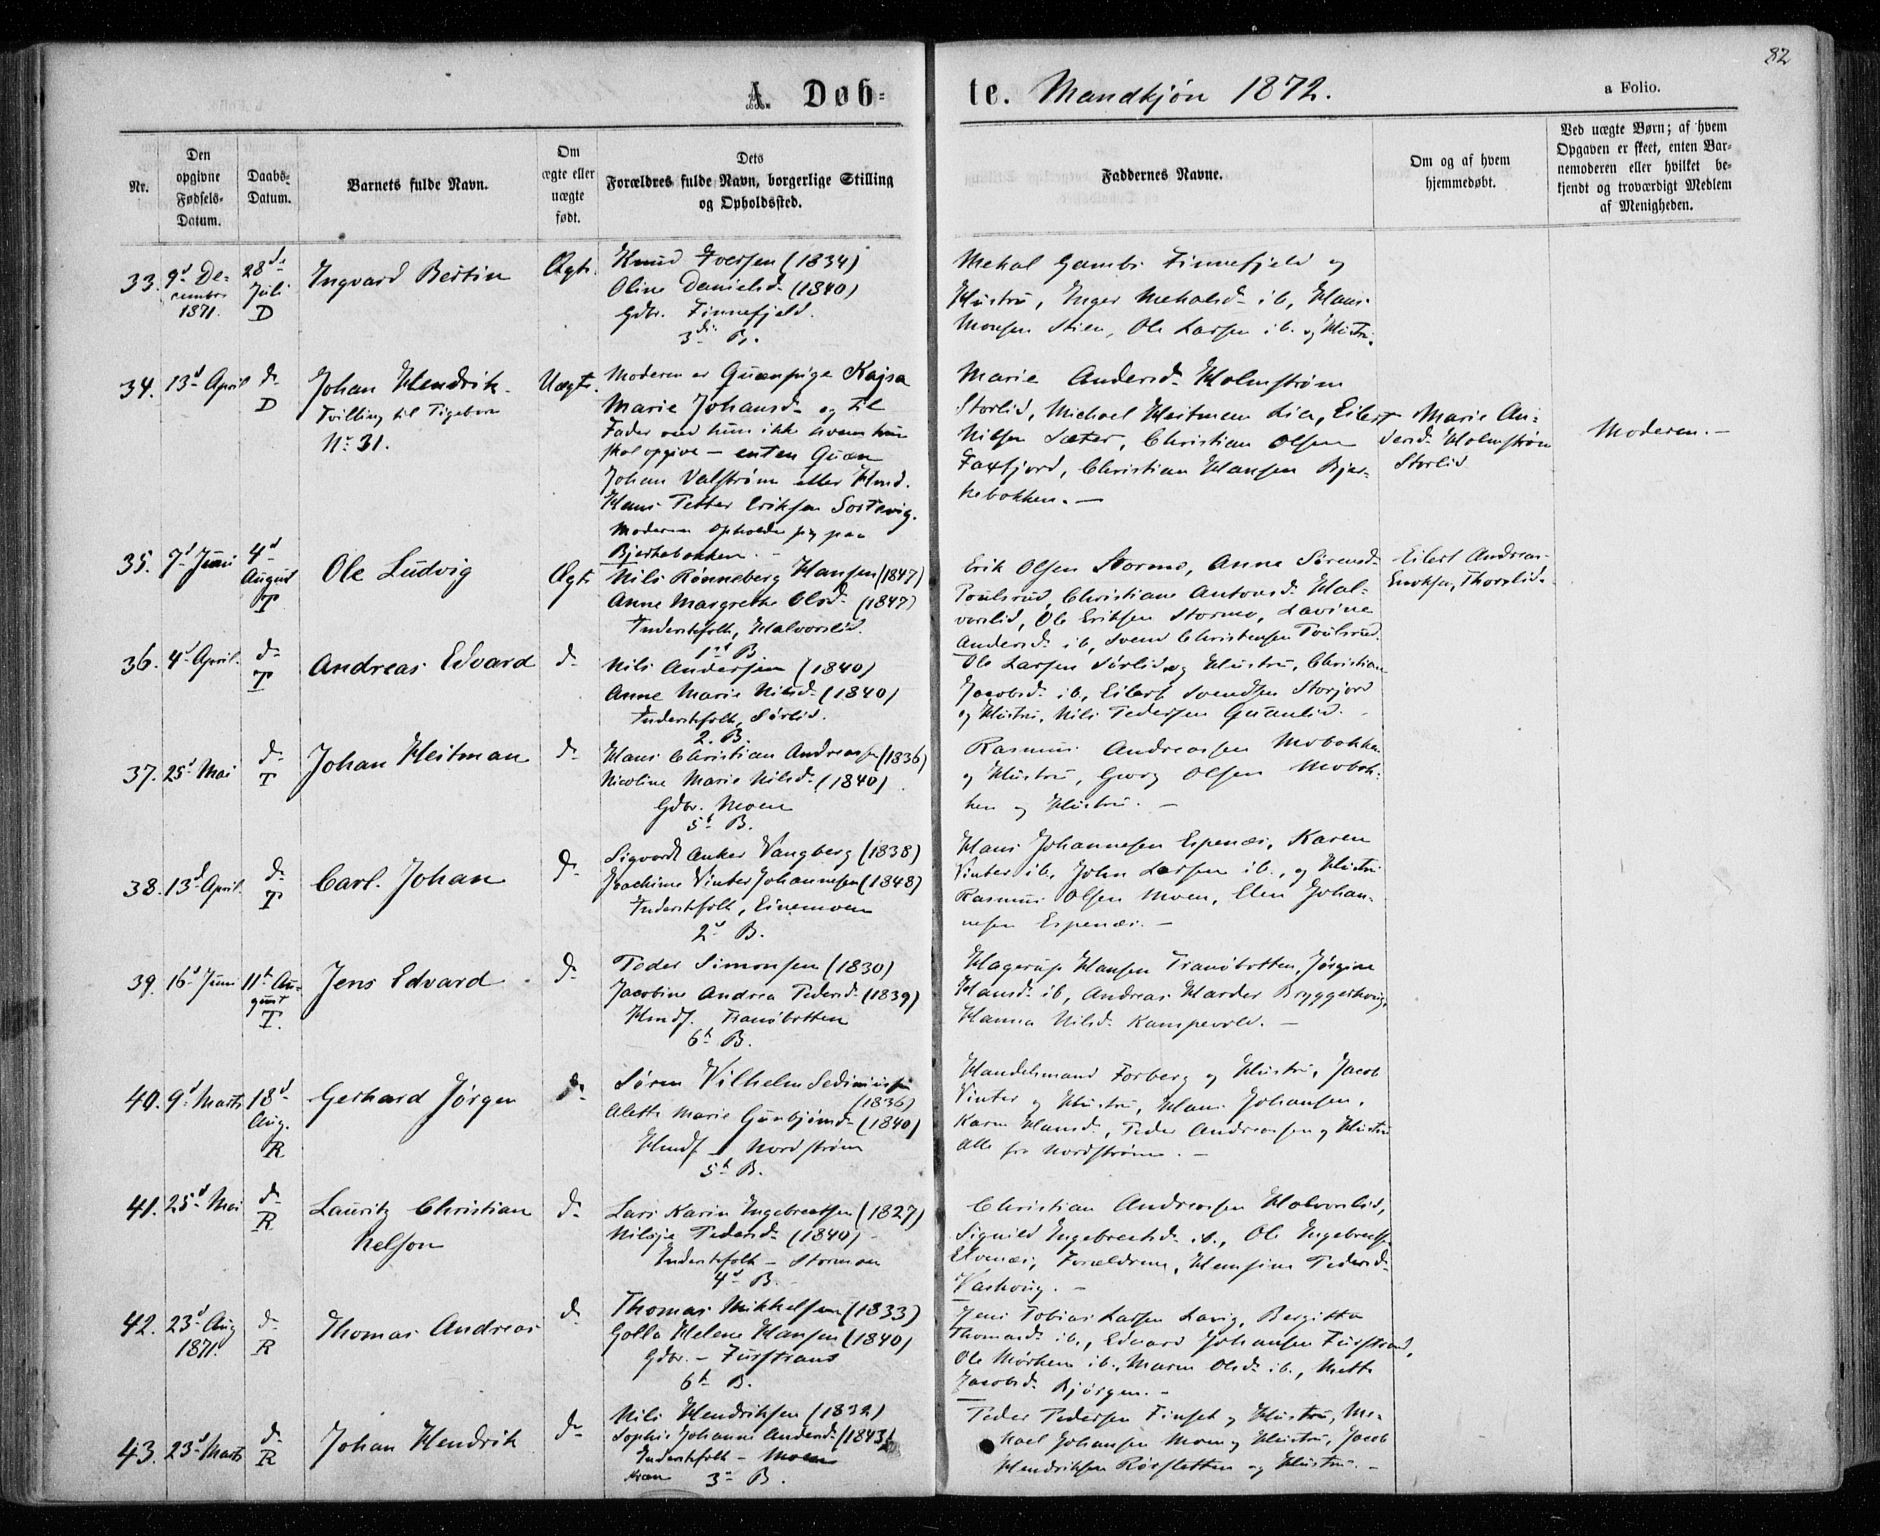 82
A. Døb-
te. Mandkjøn 1872.
a Folio.
Nr.
Den
opgivne
Fødsels-
Datum.
Daabs-
Datum.
Barnets fulde Navn.
Om
ægte eller
uægte
født.
Dets
Forældres fulde Navn, borgerlige Stilling
og Opholdssted.
Faddernes Navne.
Om og af hvem
hjemmedøbt.
Ved uægte Børn; af hvem
Opgaven er skeet, enten Bar-
nemoderen eller hvilket be-
kjendt og troværdigt Medlem
af Menigheden.
33. 9d De-
cember
1871.
28de
Juli
D
Ingvard Bertin
Ægte.
Knud Iversen (1834)
Oline Danielsd. (1840)
Gdbr. Finnefjeld.
3die B.
Mekal Finnefjeld og
Hustru, Inger Mekalsd. ib, Hans
Monsen Stien, Ole Larsen ib. og Hustru.
34. 13d April
do
D
Johan Hendrik.
Tvilling til Pigebarn
No 31.
Uægte.
Moderen er Quænpige Kajsa
Marie Johansd. og til
Fader ved hun ikke hvem hun
skal opgive – enten Quæn
Johan Valstrøm eller
Hans Petter Eriksen
Moderen opholder sig paa
Bjerkebakken. –
Marie Andersd. Holmstrøm
Storlid, Michael Heitman Lien, Eilert
Nilsen Sæter, Christian Olsen
Faxfjord, Christian Hansen Bjer-
kebakken. –
Marie An-
dersd. Holmstrøm
Storlid
Moderen. –
35. 7d Juni
4d
August
T
Ole Ludvig
Ægte
Nils Rønneberg Hansen (1847)
Anne Margrethe Olsd. (1847)
Inderstfolk, Halvorslid.
1st B.
Erik Olsen Stormo, Anne Sørensd.
Poulsrud, Christiane Antonsd. Hal-
vorslid, Ole Eriksen Stormo, Lavine
Andersd. ib, Svend Christensen Poulsrud.
Eilert Andreas
Enoksen, Thorslid.
36. 4d April.
do
T
Andreas Edvard
do
Nils Andersen (1840)
Anne Marie Nilsd. (1840)
Inderstfolk, Sørlid.
2. B.
Ole Larsen Sørlid og Hustru, Christian
Jacobsd. ib, Eilert Svendsen Storjord
og Hustru, Nils Pedersen Quanlid.
37. 25d Mai
do
T
Johan Heitman
do
Hans Christian Andreassen (1836)
Nicoline Marie Nilsd. (1840)
Gdbr. Moen
5t B.
Rasmus Andreassen Mobakken
og Hustru, Georg Olsen Mobak-
ken og Hustru. –
38. 13d April.
do
T
Carl. Johan
do
Sigvardt Anker Vangberg (1838)
Joachime Vinter Johannesen (1848)
Inderstfolk, Einemoen
2d B.
Hans Johannesen Espenæs, Karen
Vinter ib, John Larsen ib., og Hustru
Rasmus Olsen Moen, Elen Johan-
nesen Espenæs. –
39. 16d Juni
11t Au-
gust
T.
Jens Edvard
do
Peder Simonsen (1830)
Jacobine Andrea Pedersd. (1839)
Hmdf. Tranøbotten
6t B.
Hagerup Hansen Tranøbotten, Jørgine
Hansd. ib, Andreas Harder Bryggerhoug,
Hanna Nilsd. Kampevold. –
40. 9d Marts
18d
Aug.
R
Gerhard Jørgen
do
Søren Vilhelm
(1836)
Aletta Marie Gunbjørnsd. (1840)
Hmdf Nordstrøm
5t B.
Handelsmand Forberg og Hustru, Jacob
Vinter og Hustru, Hans Johansen,
Karen Hansd., Peder Andreassen og Hustru
alle fra Nordstrøm. –
41. 25d Mai
do
R
Lauritz Christian
Nelson
do
Lars Karin Ingebretsen (1827)
Pedersd. (1840)
Inderstfolk – Stormoen
4d B. –
Christian Andreasen Halvorslid,
Signild Ingebretsd. ib., Ole Ingebretsen
Elvenæs, Forældrene, Hansine Pedersd.
Vashoug. –
42. 23d Aug
1871.
do
R
Thomas Andreas
do
Thomas Mikkelsen (1833)
Golla Helene Hansen (1840)
Gdbr. – Fusstrand
6t B.
Jens Tobias Larsen Lavig, Bergitta
Thomasd. ib., Edvard Johansen Fusstrand,
Ole Mørken ib., Maren Olsd. ib., Mette
Jacobsd. Bjørgen. –
43. 23d Marts
do
R
Johan Hendrik
do
Nils Hendriksen (1832)
Sophie Johanne Andersd. (1843)
Inderstfolk – Moen
3d B.
Peder Pedersen Finset og Hustru, Me-
kael Johansen Moen og Hustru, Jacob
Hendriksen Røesletten og Hustru. –